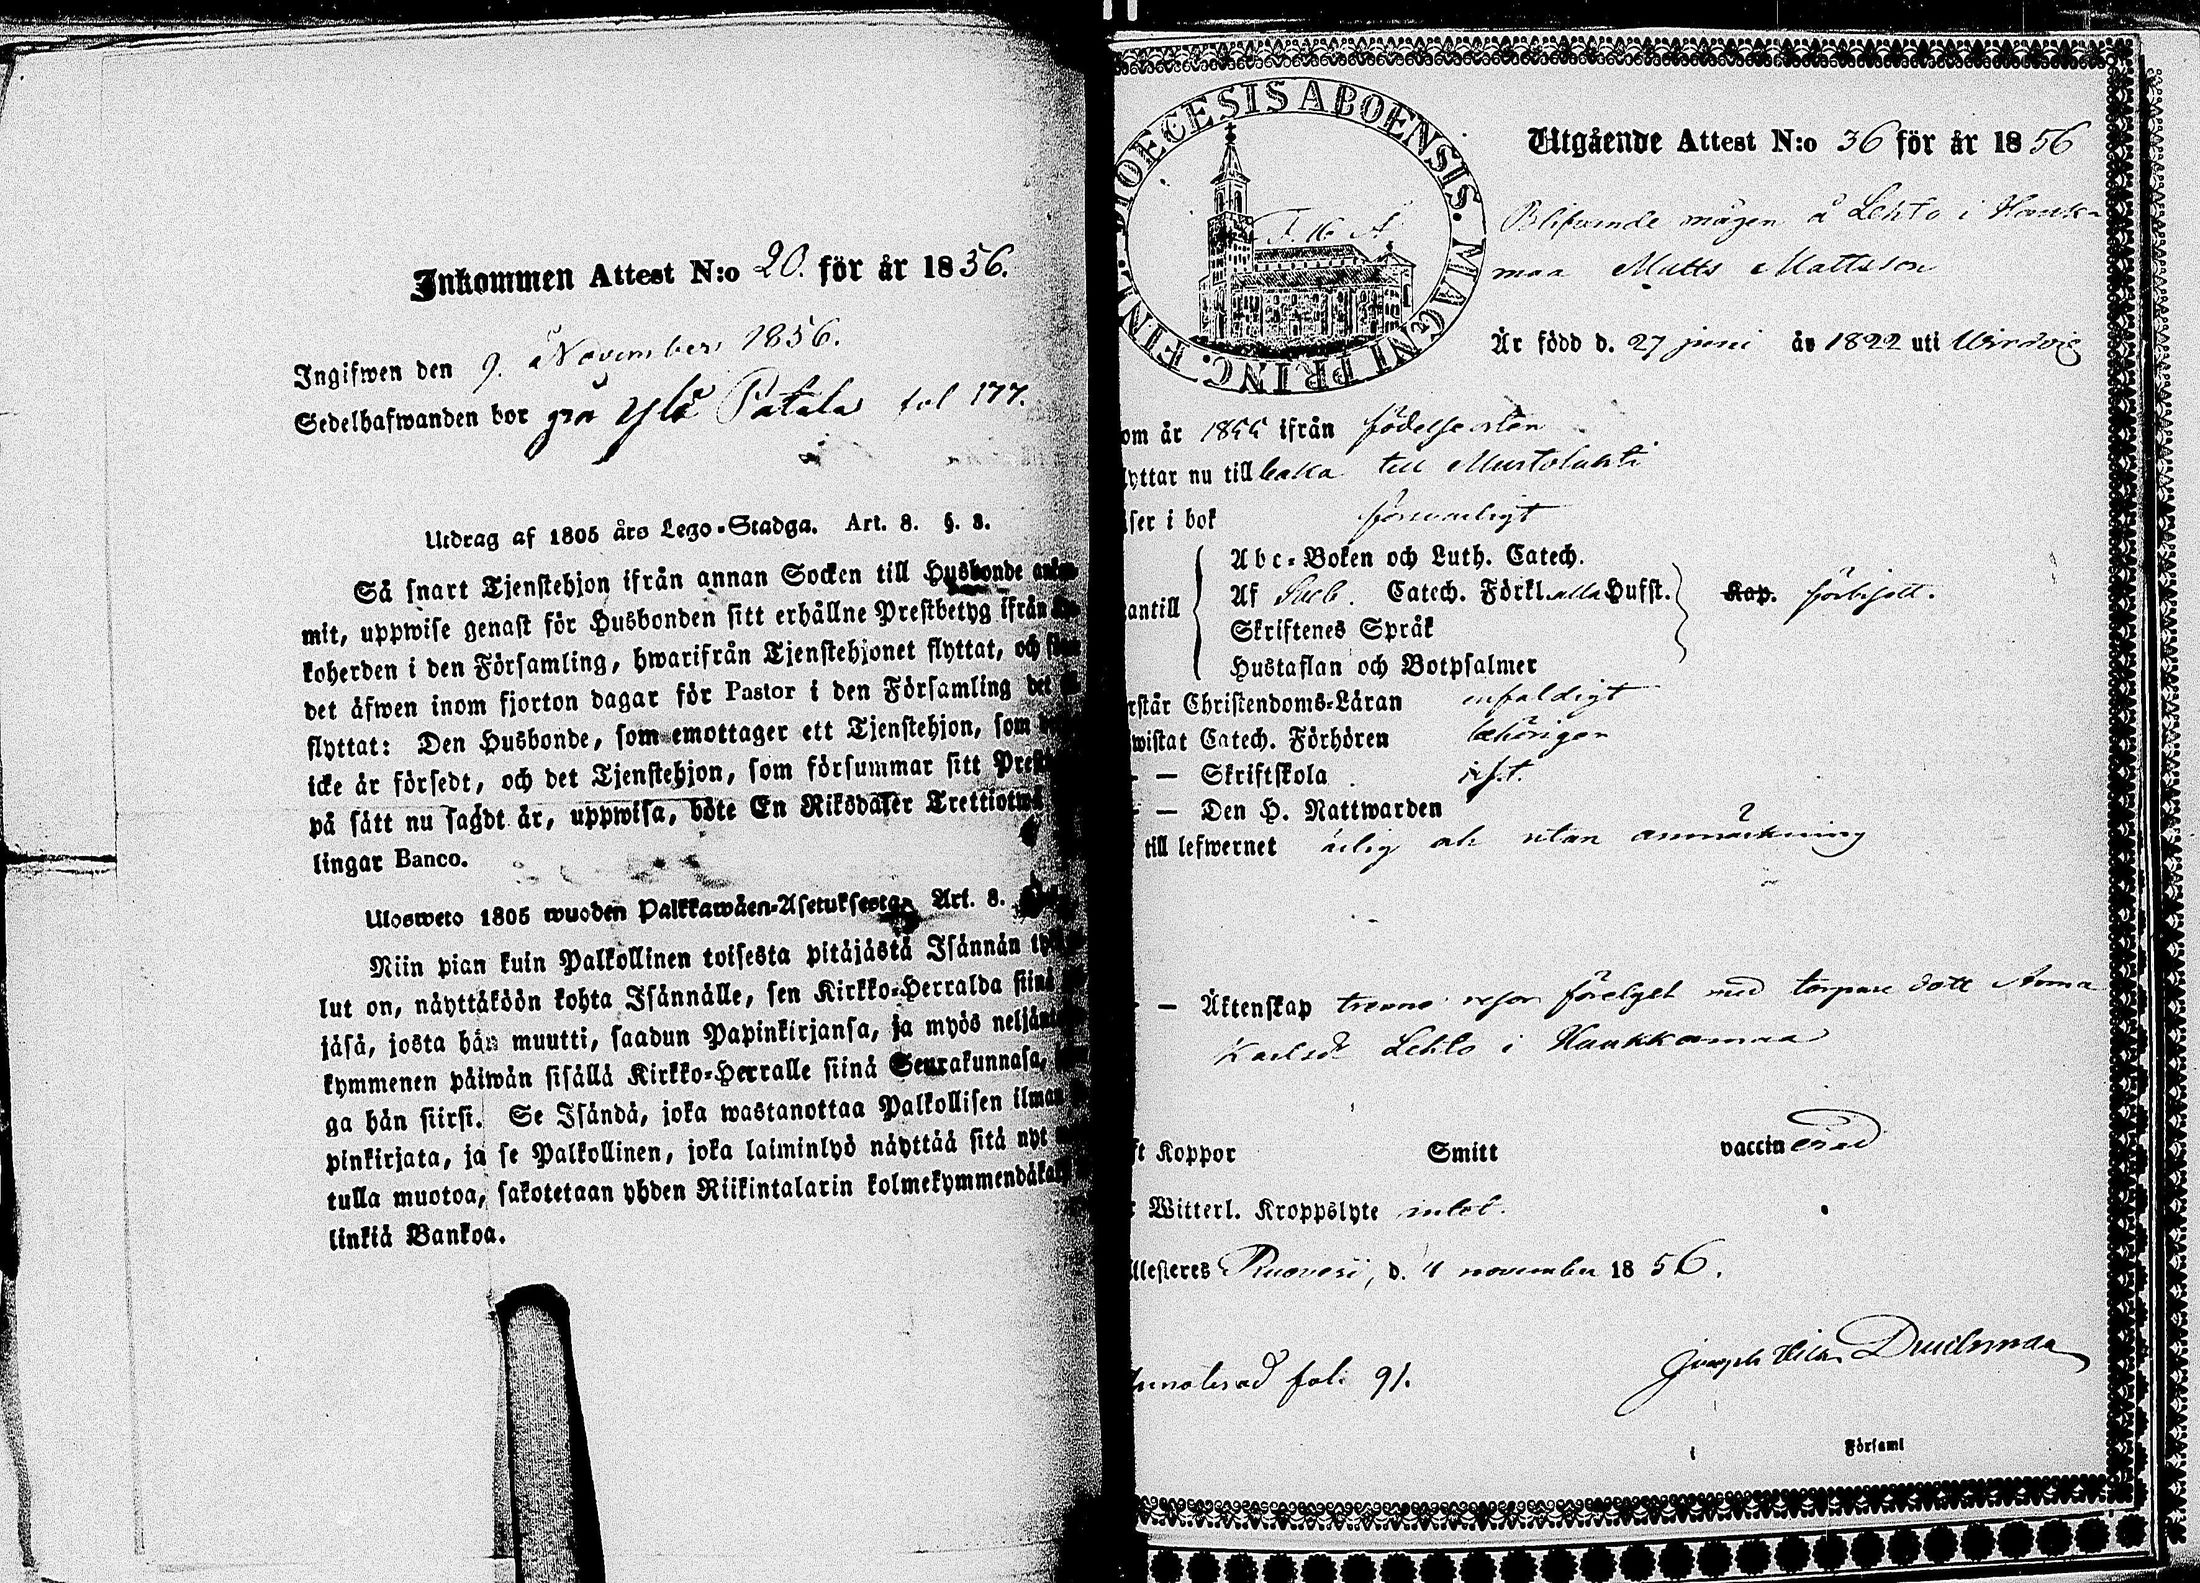 Inkommen Attest N:o 20. för år 1856.
Ingifwen den 9. November 1856.
Sedelhafwanden bor på Ylä Patala fol 177.
Utdrag af 1805 års Lego-Stadga. Art. 8. §. 8.
Så snart Tjenstehjon ifrån annan Socken till Husbonde
mit, uppwise genast för Husbonden sitt erhållne Prestbetyg ifrån
koherden i den Församling, hwarifrån Tjenstehjonet flyttat, och
det äfwen inom fjorton dagar för Pastor i den Församling det
flyttat: Den Husbonde, som emottager ett Tjenstehjon, som
icke är försedt, och det Tjenstehjon, som försummar sitt
på sätt nu sagdt är, uppwisa, böte En Riksdaler Trettiotwå
lingar Banco.
Ulosweto 1805 wuoden Palkkawäen-Asetuksesta, Art. 8.
Niin pian kuin Palkollinen toisesta pitäjästä Isännän
lut on, näyttäköön kohta Isännälle, sen Kirkko-Herralda siinä
jäsä, josta hän muutti, saadun Papinkirjansa, ja myös
kymmenen päiwän sisällä Kirkko-Herralle siinä Seurakunnasa,
ga hän siirsi. Se Isändä, joka wastanottaa Palkollisen ilman
pinkirjata, ja se Palkollinen, joka laiminlyö näyttää sitä nyt
tulla muotoa, sakotetaan yhden Riikintalarin
linkiä Bankoa.
DIOECESIS ABOENSIS. MAGNI PRINC. FINL.
Utgående Attest N:o 36 för år 1856
Blifwande mågen å Lehto i
maa Matts Mattsson
Är född d. 27 juni år 1822 uti
om år 1855 ifrån födelseorten
yttar nu till baka till
ser i bok försvarligt
Abc-Boken och Luth. Catech.
antill Af Sveb. Catech. Förkl. alla Hufst. Kap. förbisett.
Skriftenes Språk
Hustaflan och Botpsalmer
rstår Christendoms-Läran enfaldigt
wistat Catech. Förhören behörigen
— Skriftskola
— Den H. Nattwarden
till lefwernet ärlig och utan anmärkning
— Äktenskap trenne resor förelyst med torpare dott Anna
Karlsdr Lehto i Haukkamaa
ft Koppor Smitt vaccinerad
Witterl. Kroppslyte intet.
llesteres Ruovesi, d. 4 november 1856.
Joseph Wilh.
fol. 91.
Församl